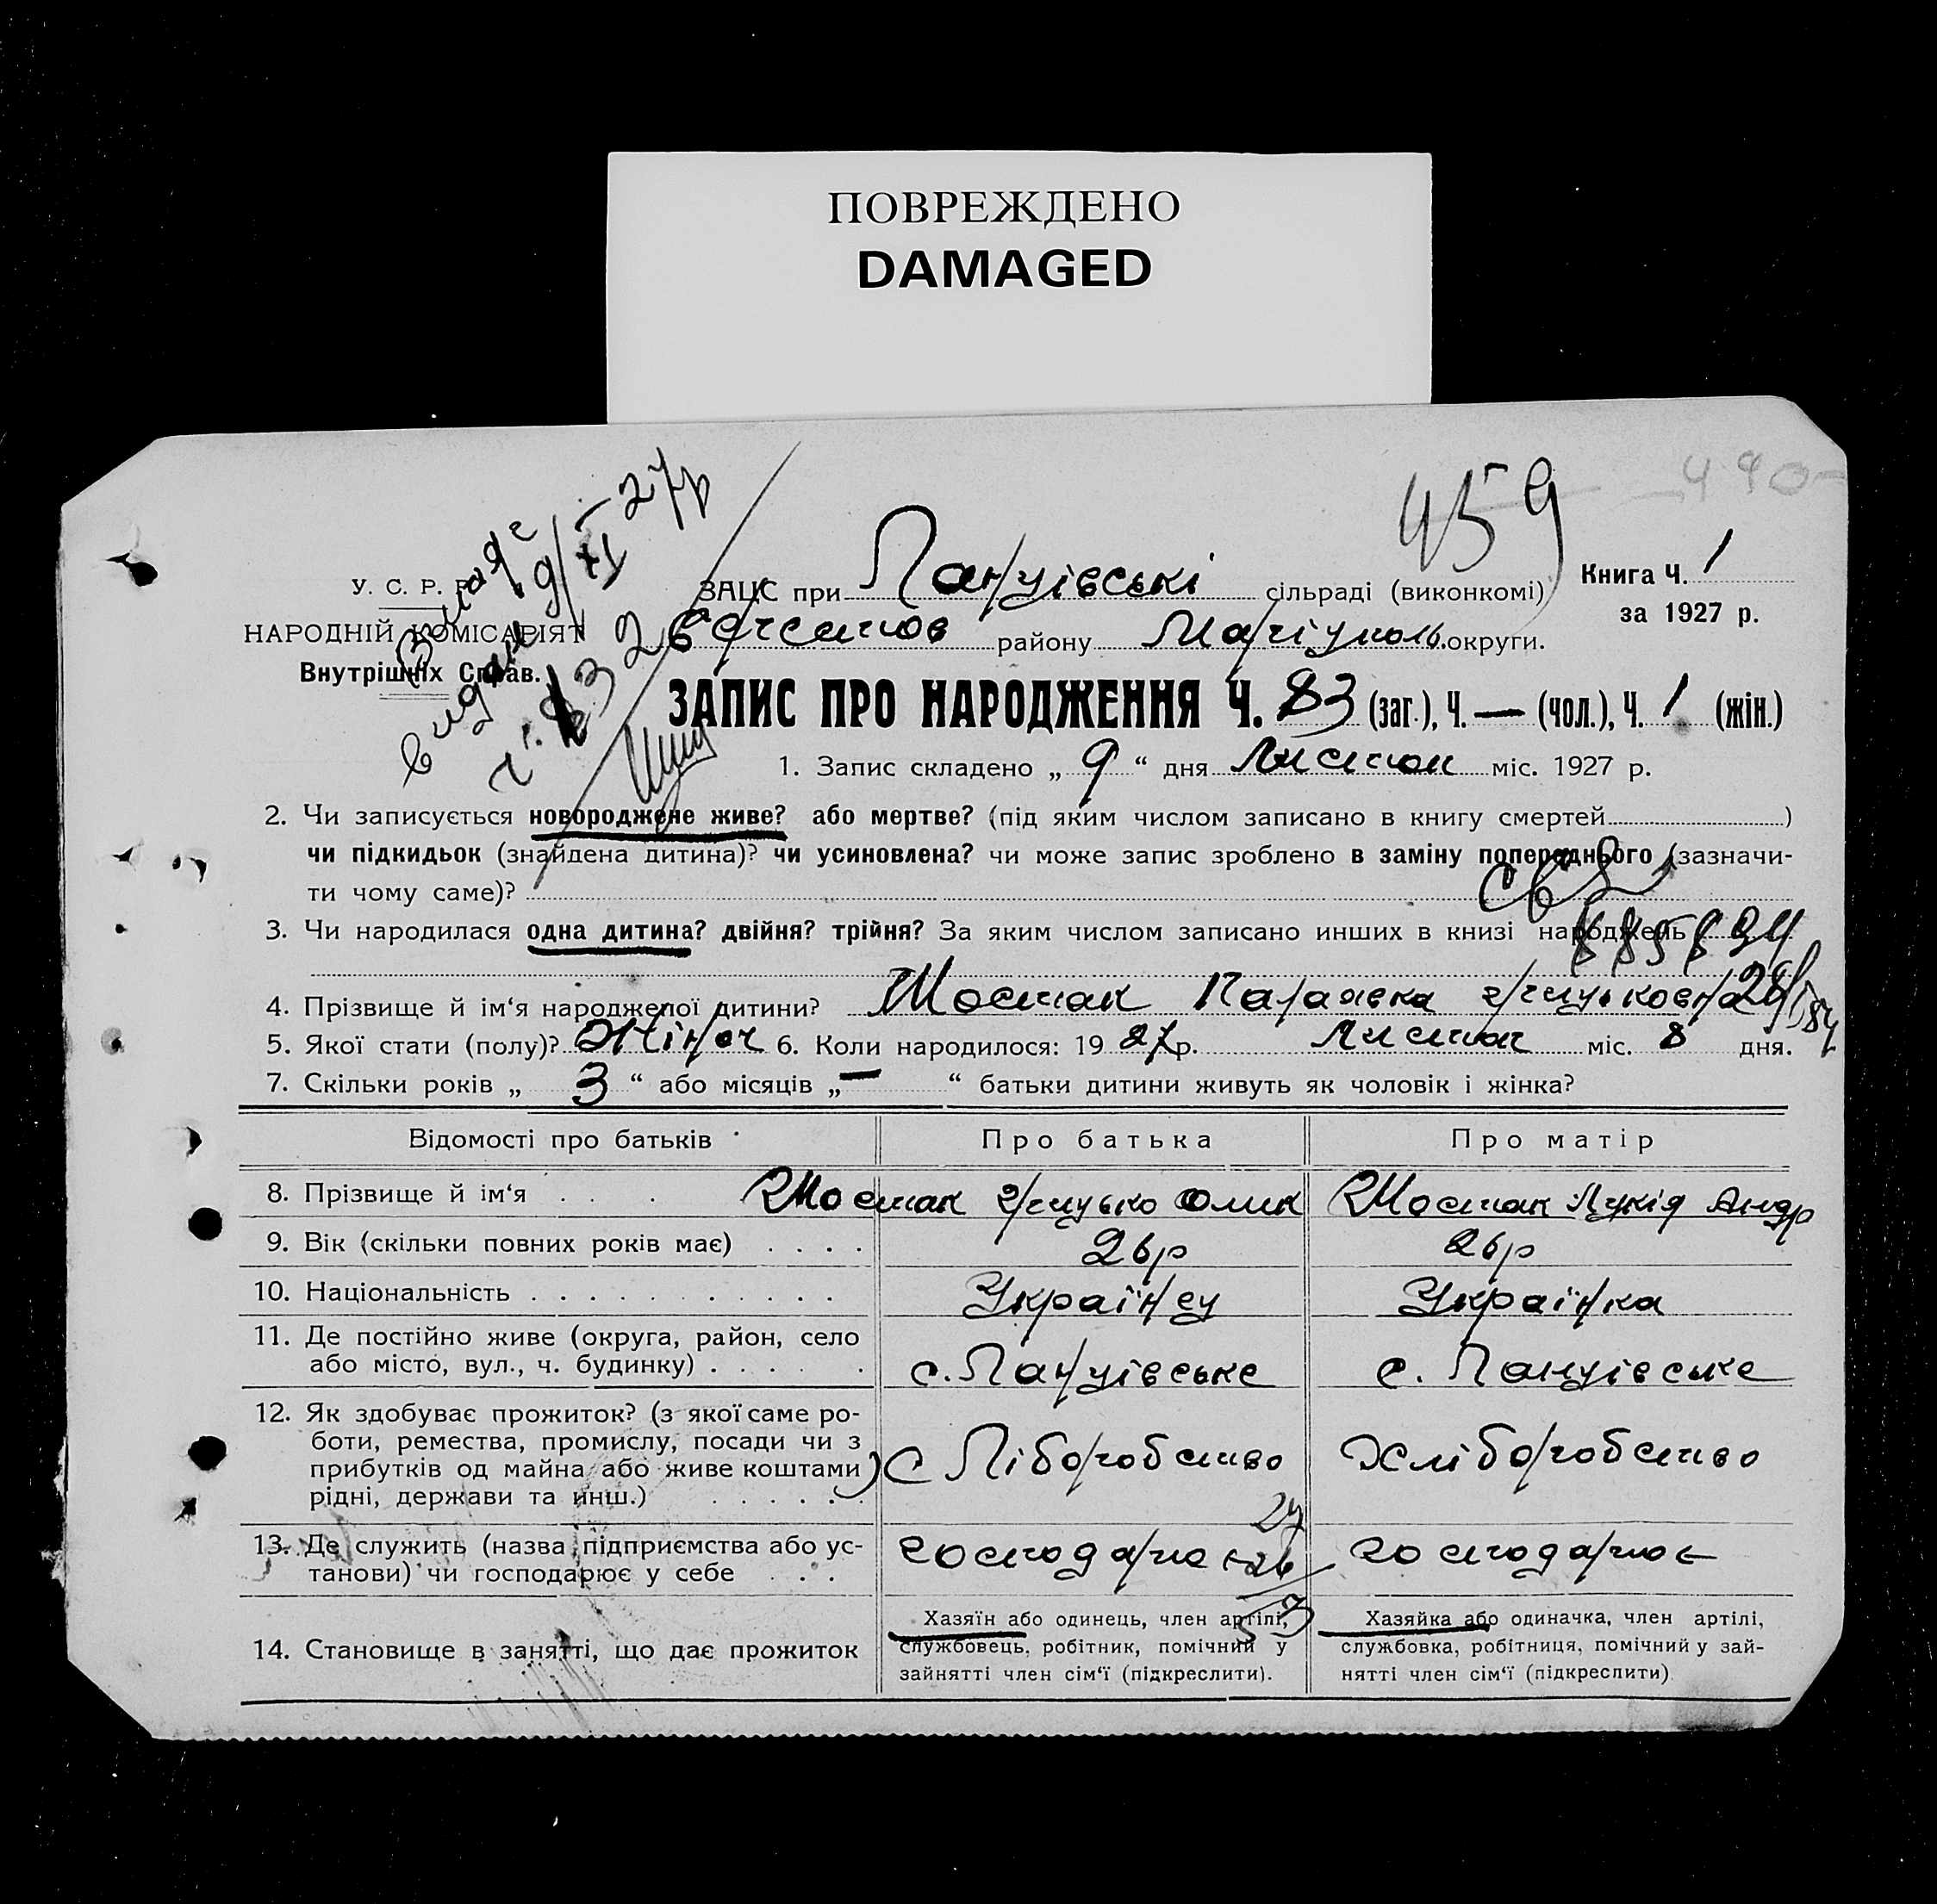 ПОВРЕЖДЕНО
DAMAGED
459
490
У. С. Р. Р.
НАРОДНІЙ КОМІСАРІЯТ
Внутрішніх Справ.
Випис
видан 9/XI-27р
ЗАЦС при сільраді (виконкомі)
району Маріуполь. округи.
Книга Ч. 1
за 1927 р.
ЗАПИС ПРО НАРОДЖЕННЯ Ч. 83 (заг.), Ч. — (чол.), Ч. 1 (жін.)
1. Запис складено „ 9 “ дня Листоп міс. 1927 р.
2. Чи записується новороджене живе? або мертве? (під яким числом записано в книгу смертей )
чи підкидьок (знайдена дитина)? чи усиновлена? чи може запис зроблено в заміну попереднього (зазначи-
ти чому саме)?
3. Чи народилася одна дитина? двійня? трійня? За яким числом записано инших в книзі народжень
4. Прізвище й ім‘я народженої дитини? Шостак Параска
5. Якої стати (полу)? Жіноч 6. Коли народилося: 19 27 р. Листоп міс. 8 дня.
7. Скільки років „ 3 “ або місяців „ — “ батьки дитини живуть як чоловік і жінка?
Відомості про батьків Про батька Про матір
8. Прізвище й ім‘я . . . Шостак Грицько Омик Шостак Лукід Андр
9. Вік (скільки повних років має) . . . . 26р 26р
10. Національність . . . . . . . . . . . Українец Українка
11. Де постійно живе (округа, район, село
або місто, вул., ч. будинку) . . . . . . с. Ланцівське с. Ланцівське
12. Як здобуває прожиток? (з якої саме ро-
боти, ремества, промислу, посади чи з
прибутків од майна або живе коштами
рідні, держави та инш.) . . . . . . Хліборобство Хліборобство
13. Де служить (назва підприємства або ус-
танови) чи господарює у себе . . . господарює господарює
27
26
53
14. Становище в занятті, що дає прожиток
Хазяїн або одинець, член артілі,
службовець, робітник, помічний у
зайнятті член сім‘ї (підкреслити).
Хазяйка або одиначка, член артілі,
службовка, робітниця, помічний у зай-
нятті член сім‘ї (підкреслити).